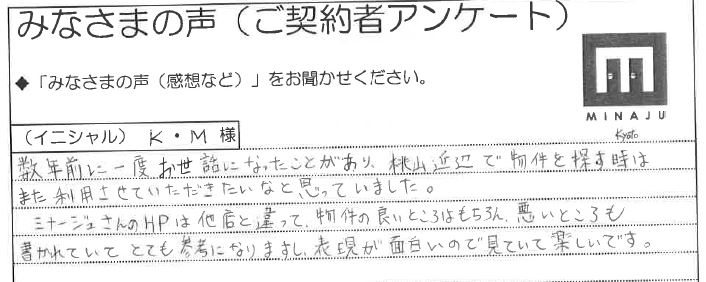 みなさまの声（ご契約者アンケート）
◆「みなさまの声（感想など）」をお聞かせください。
MINAJU
Kyoto
（イニシャル） K・M 様
数年前に一度お世話になったことがあり、桃山近辺で物件を探す時は
また利用させていただきたいなと思っていました。
ミナージュさんのHPは他店と違って、物件の良いところはもちろん、悪いところも
書かれていてとても参考になりますし、表現が面白いので見ていて楽しいです。